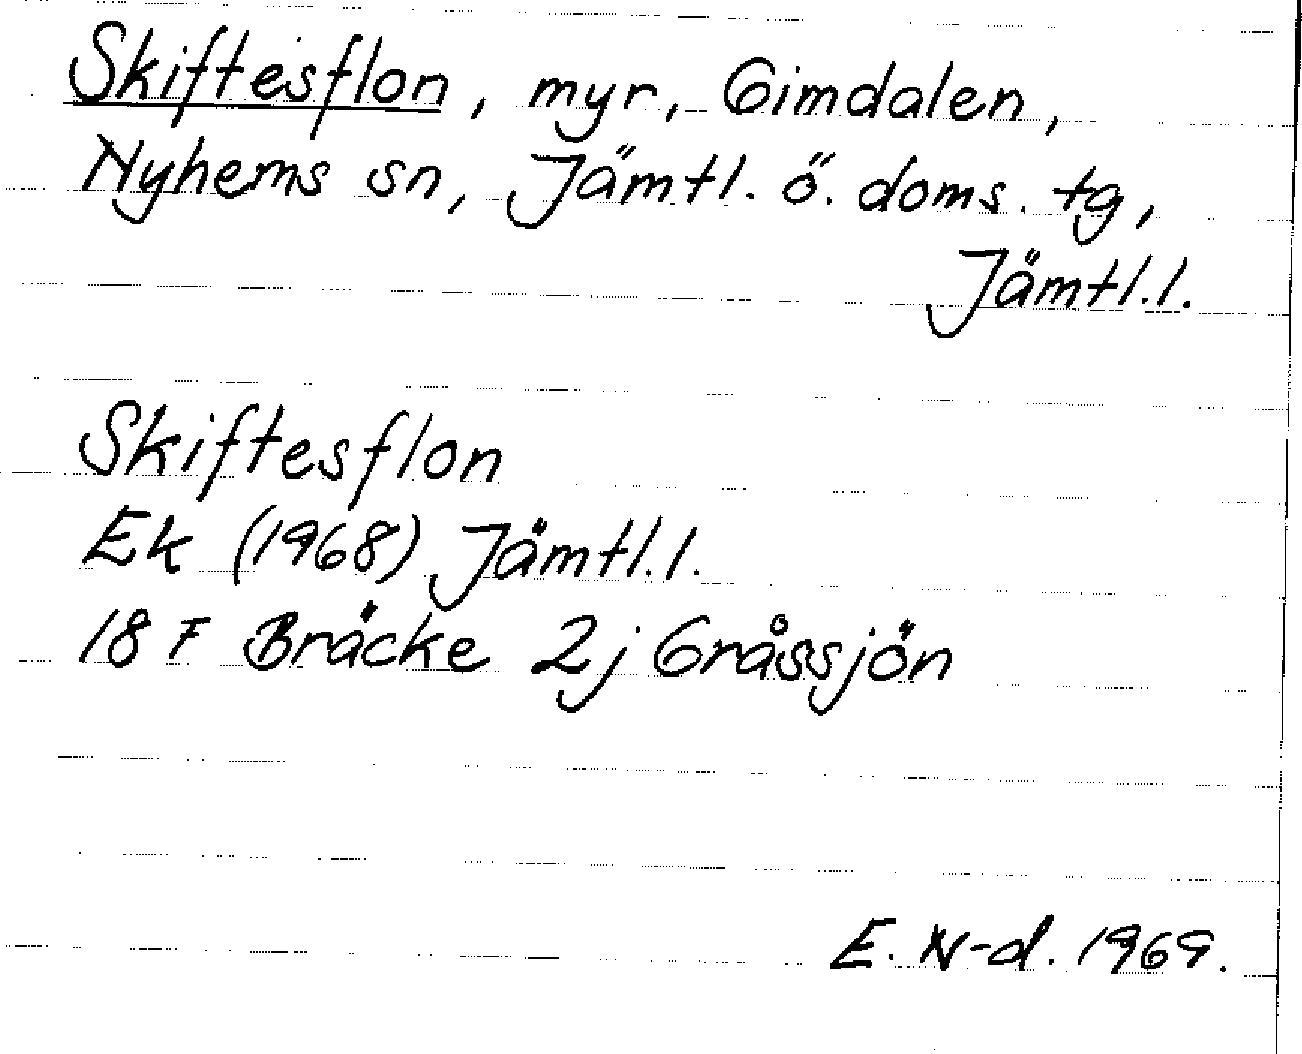 Skiftesflon, myr, Gimdalen,
Nyhems sn, Jämtl. ö. doms. tg,
Jämtl.l.
Skiftesflon
Ek (1968) Jämtl.l.
18 F Bräcke 2j Gråssjön
E. N-d. 1969.